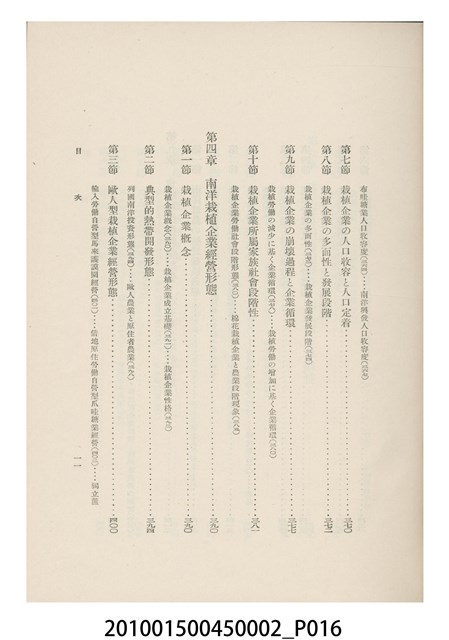 布哇糖業人口收容度
第七節 栽植企業の人口收容と人口定着……三七〇
第八節 栽植企業の多面性と發展段階……三七二
栽植企業の多面性……栽植企業發展段階
第九節 栽植企業の崩壞過程と企業循環……三七七
栽植勞働の減少に基く企業循環……栽植勞働の增加に基く企業循環
第十節 栽植企業所屬家族社會段階性……三八一
栽植企業勞働社會段階形態……棉花栽植企業と農業段階現象
第四章 南洋栽植企業經營形態……三九〇
第一節 栽植企業概念……三九〇
栽植企業概念……栽植企業成立基礎……栽植企業性格
第二節 典型的熱帶開發形態……三九四
列國南洋投資形態……歐人農業と原住者農業
第三節 歐人型栽植企業經營形態……四〇〇
輸入勞働自營型馬來護謨園經營……借地原住勞働自營型爪哇糖業經營……國立蔗
目次 一一
201001500450002_P016